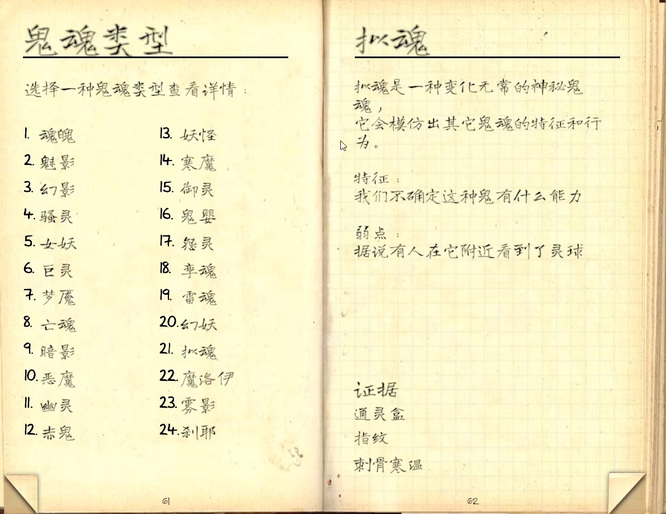 鬼魂类型
选择一种鬼魂类型查看详情：
1. 魂魄
2. 魅影
3. 幻影
4. 骚灵
5. 女妖
6. 巨灵
7. 梦魇
8. 亡魂
9. 暗影
10. 恶魔
11. 幽灵
12. 赤鬼
13. 妖怪
14. 寒魔
15. 御灵
16. 鬼婴
17. 怨灵
18. 孪魂
19. 雷魂
20. 幻妖
21. 拟魂
22. 魔洛伊
23. 雾影
24. 刹耶
61
拟魂
拟魂是一种变化无常的神秘鬼
魂，
它会模仿出其它鬼魂的特征和行
为。
特征：
我们不确定这种鬼有什么能力
弱点：
据说有人在它附近看到了灵球
证据
通灵盒
指纹
刺骨寒温
62